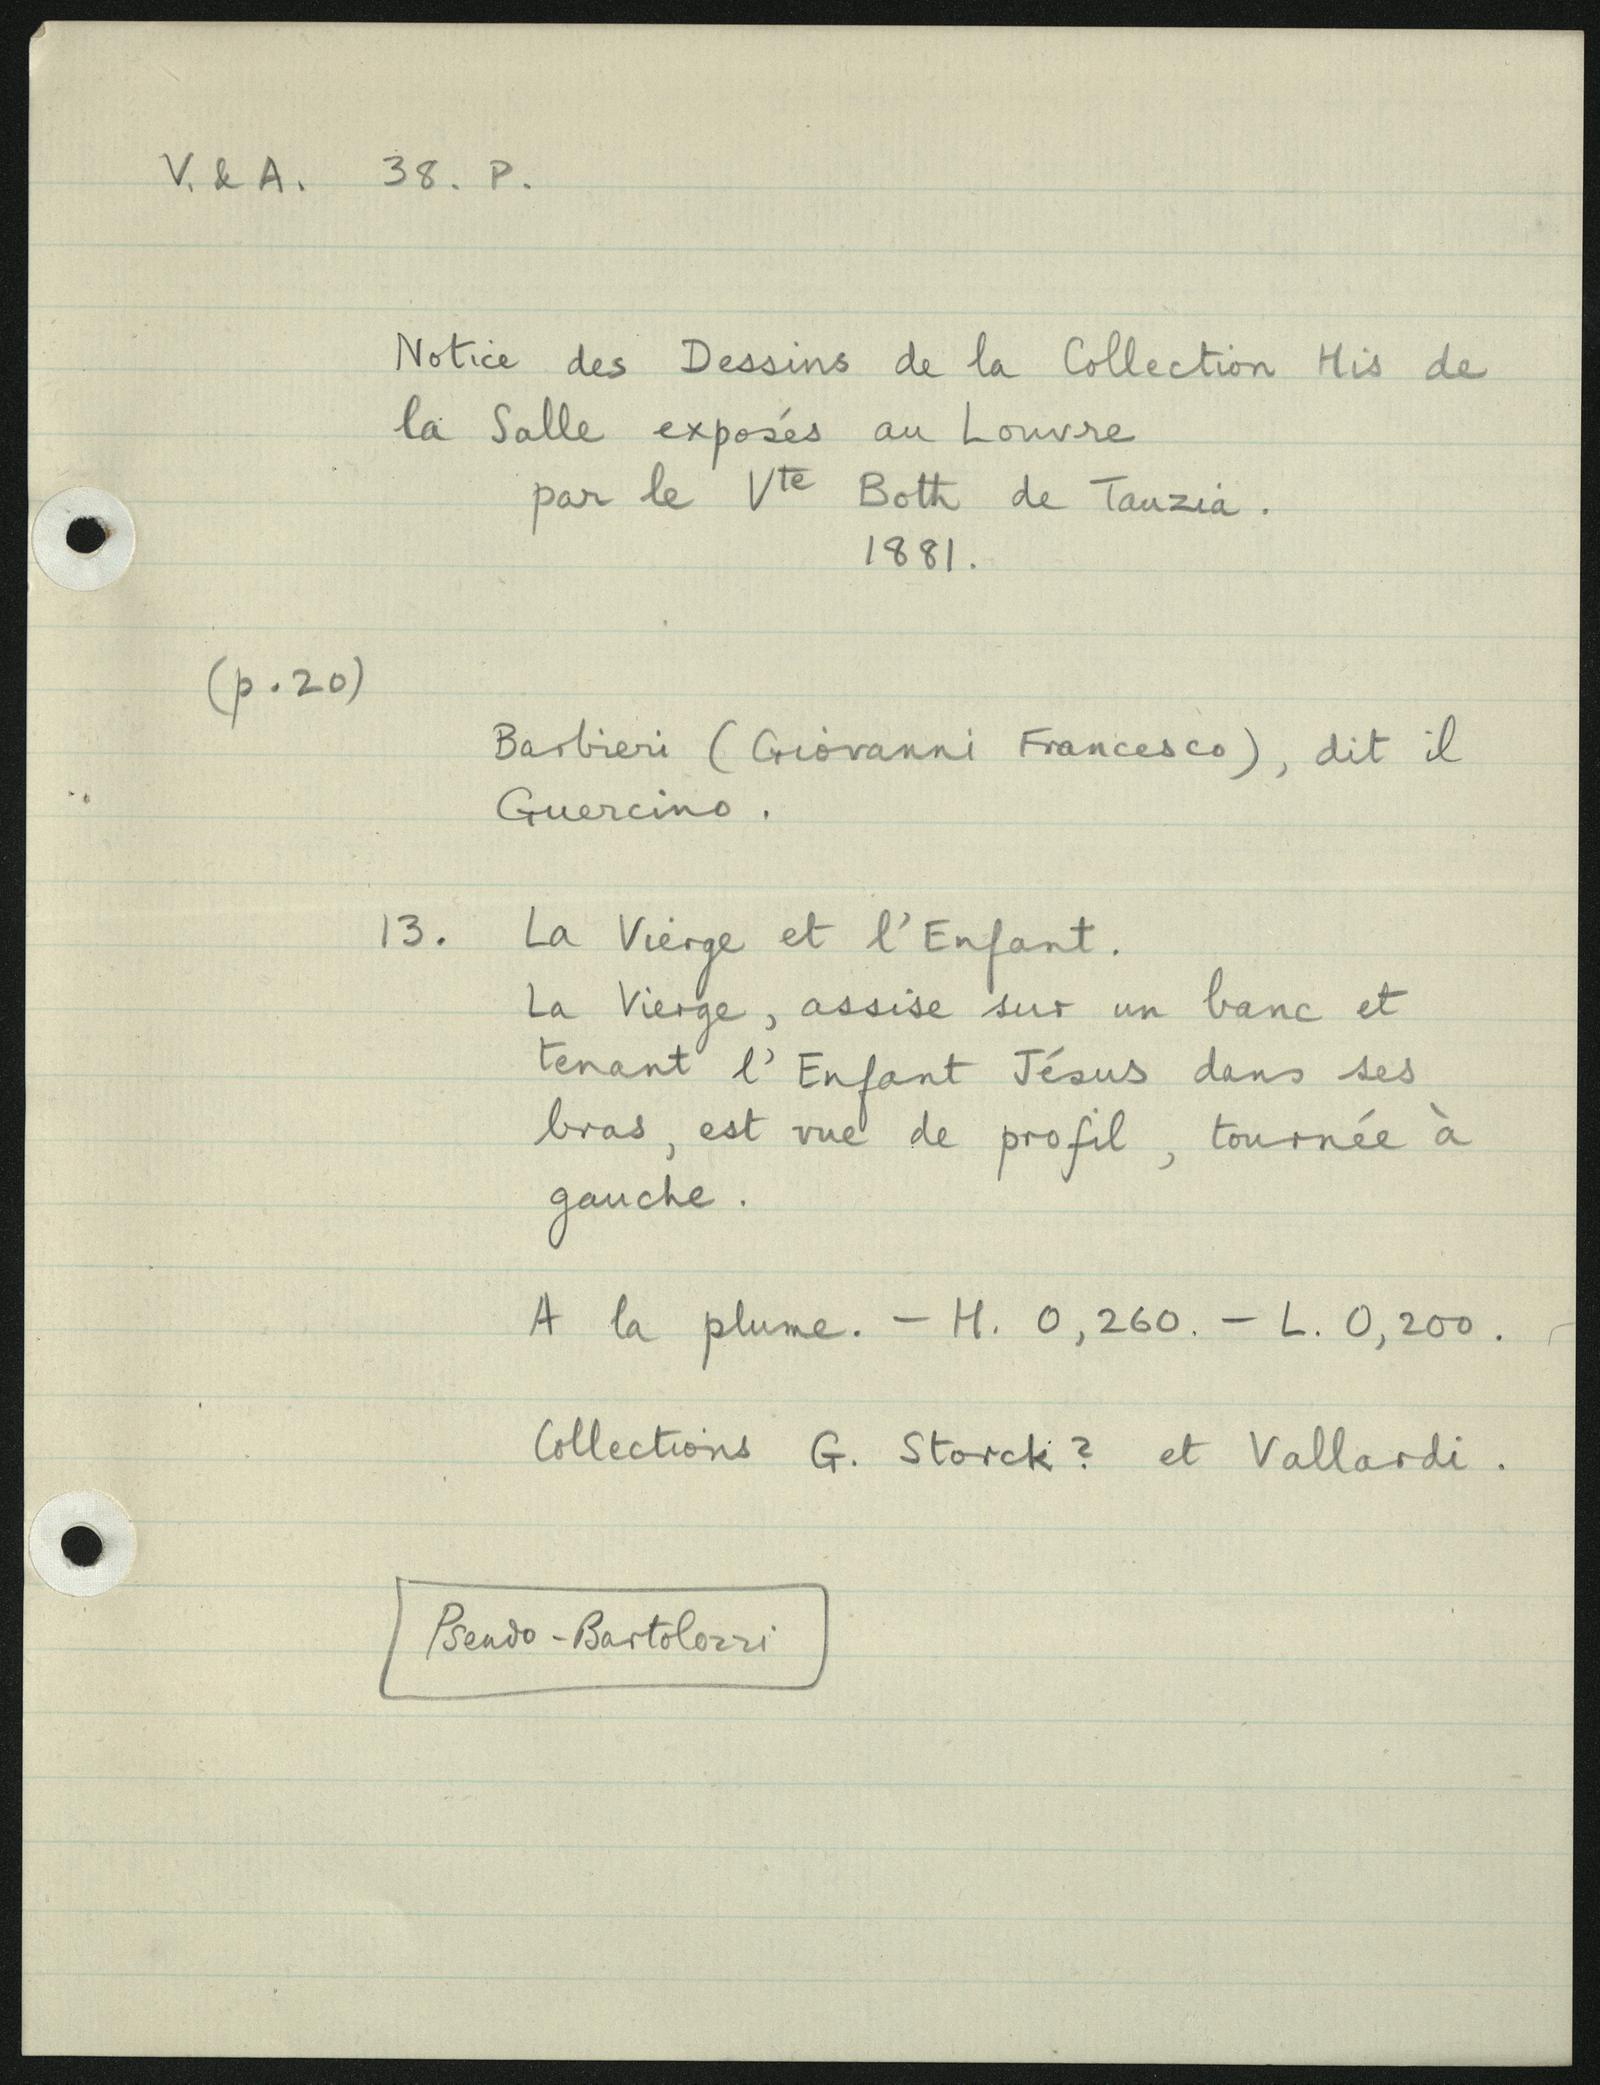 V. & A. 38. P.
Notice des Dessins de la Collection His de
la Salle exposés au Louvre
par le Vte Both de Tauzia.
1881.
(p. 20)
Barbieri (Giovanni Francesco), dit il
Guercino.
13. La Vierge et l'Enfant.
La Vierge, assise sur un banc et
tenant l'Enfant Jésus dans ses
bras, est vue de profil, tournée à
gauche.
A la plume. — H. 0,260. — L. 0,200.
Collections G. Storck? et Vallardi.
Pseudo-Bartolozzi